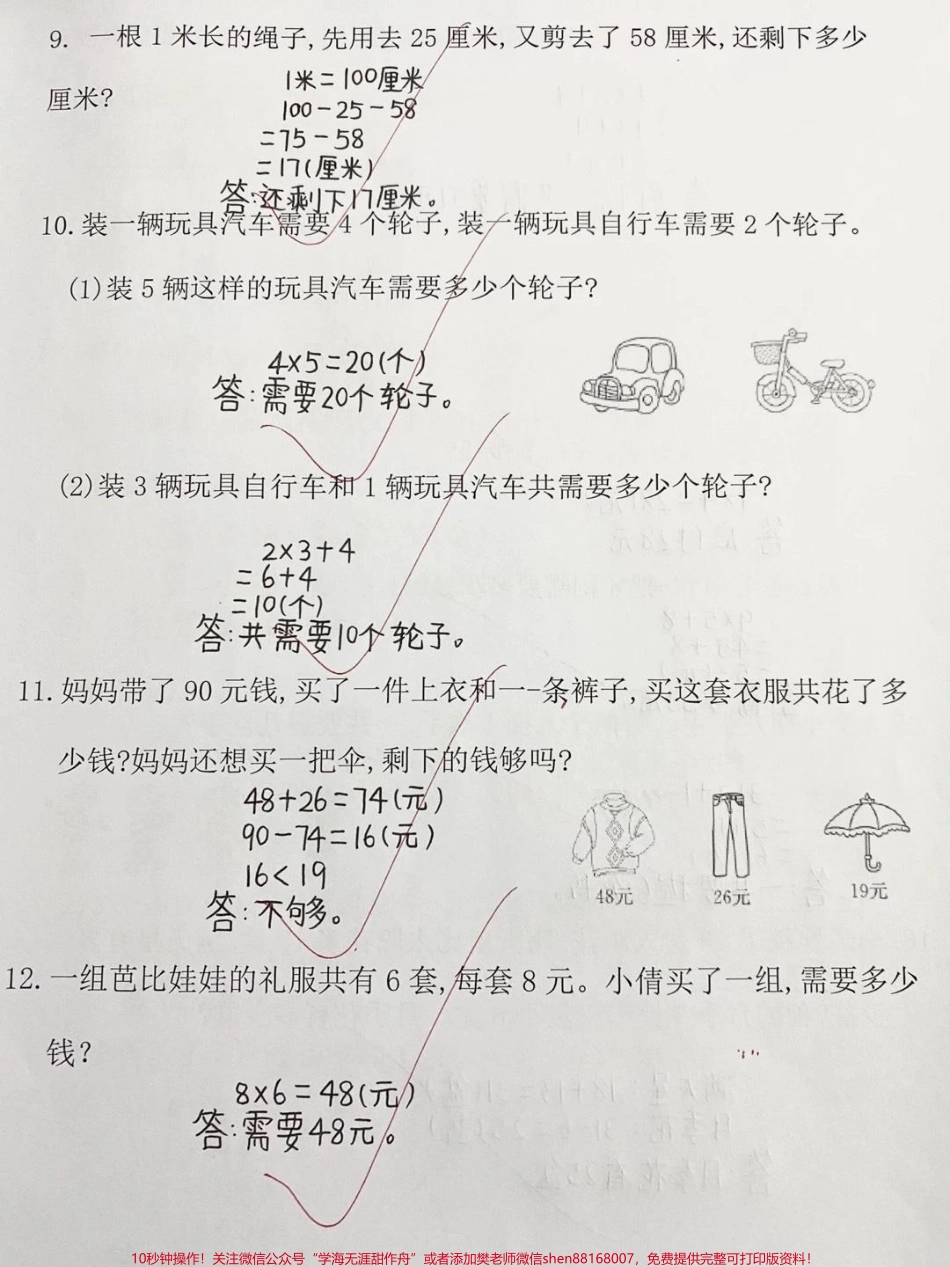 9. 一根1米长的绳子,先用去25厘米,又剪去了58厘米,还剩下多少
厘米?
1米=100厘米
100-25-58
=75-58
=17(厘米)
答:还剩下17厘米。
10.装一辆玩具汽车需要4个轮子,装一辆玩具自行车需要2个轮子。
(1)装5辆这样的玩具汽车需要多少个轮子?
4×5=20(个)
答:需要20个轮子。
(2)装3辆玩具自行车和1辆玩具汽车共需要多少个轮子?
2×3+4
=6+4
=10(个)
答:共需要10个轮子。
11.妈妈带了90元钱,买了一件上衣和一-条裤子,买这套衣服共花了多
少钱?妈妈还想买一把伞,剩下的钱够吗?
48+26=74(元)
90-74=16(元)
16<19
答:不够。
48元 26元 19元
12.一组芭比娃娃的礼服共有6套,每套8元。小倩买了一组,需要多少
钱?
8×6=48(元)
答:需要48元。
10秒钟操作！关注微信公众号“学海无涯甜作舟”或者添加樊老师微信shen88168007，免费提供完整可打印版资料！